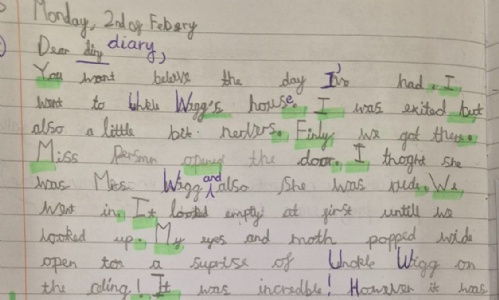 Monday, 2nd of Febery
Dear diy diary,
You wont beleve the day I've had. I
went to Unkle Wigg's house. I was exited but
also a little bit nervers. Finly we got there.
Miss Person opened the door. I thoght she
was Miss Wigg and also she was rude. We
went in. It looked empty at first untill we
looked up. My eyes and moth popped wide
open to a suprise of Unckle Wigg on
the celing! It was incredble! However it was